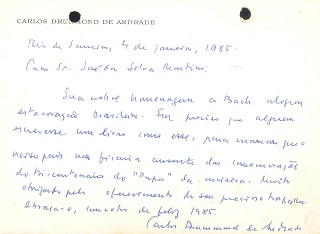 CARLOS DRUMMOND DE ANDRADE
Rio de Janeiro, 4 de janeiro, 1985.
Caro Sr. Silva Martins,
Sua nobre homenagem a Bach alegrou
este coração brasileiro. Era preciso que alguém
escrevesse um livro como esse, para marcar que
nosso país não ficaria ausente das comemorações
do tri-centenário do "Papa" da música. Muito
obrigado pelo oferecimento do seu precioso trabalho.
Abraço-o, com votos de feliz 1985.
Carlos Drummond de Andrade